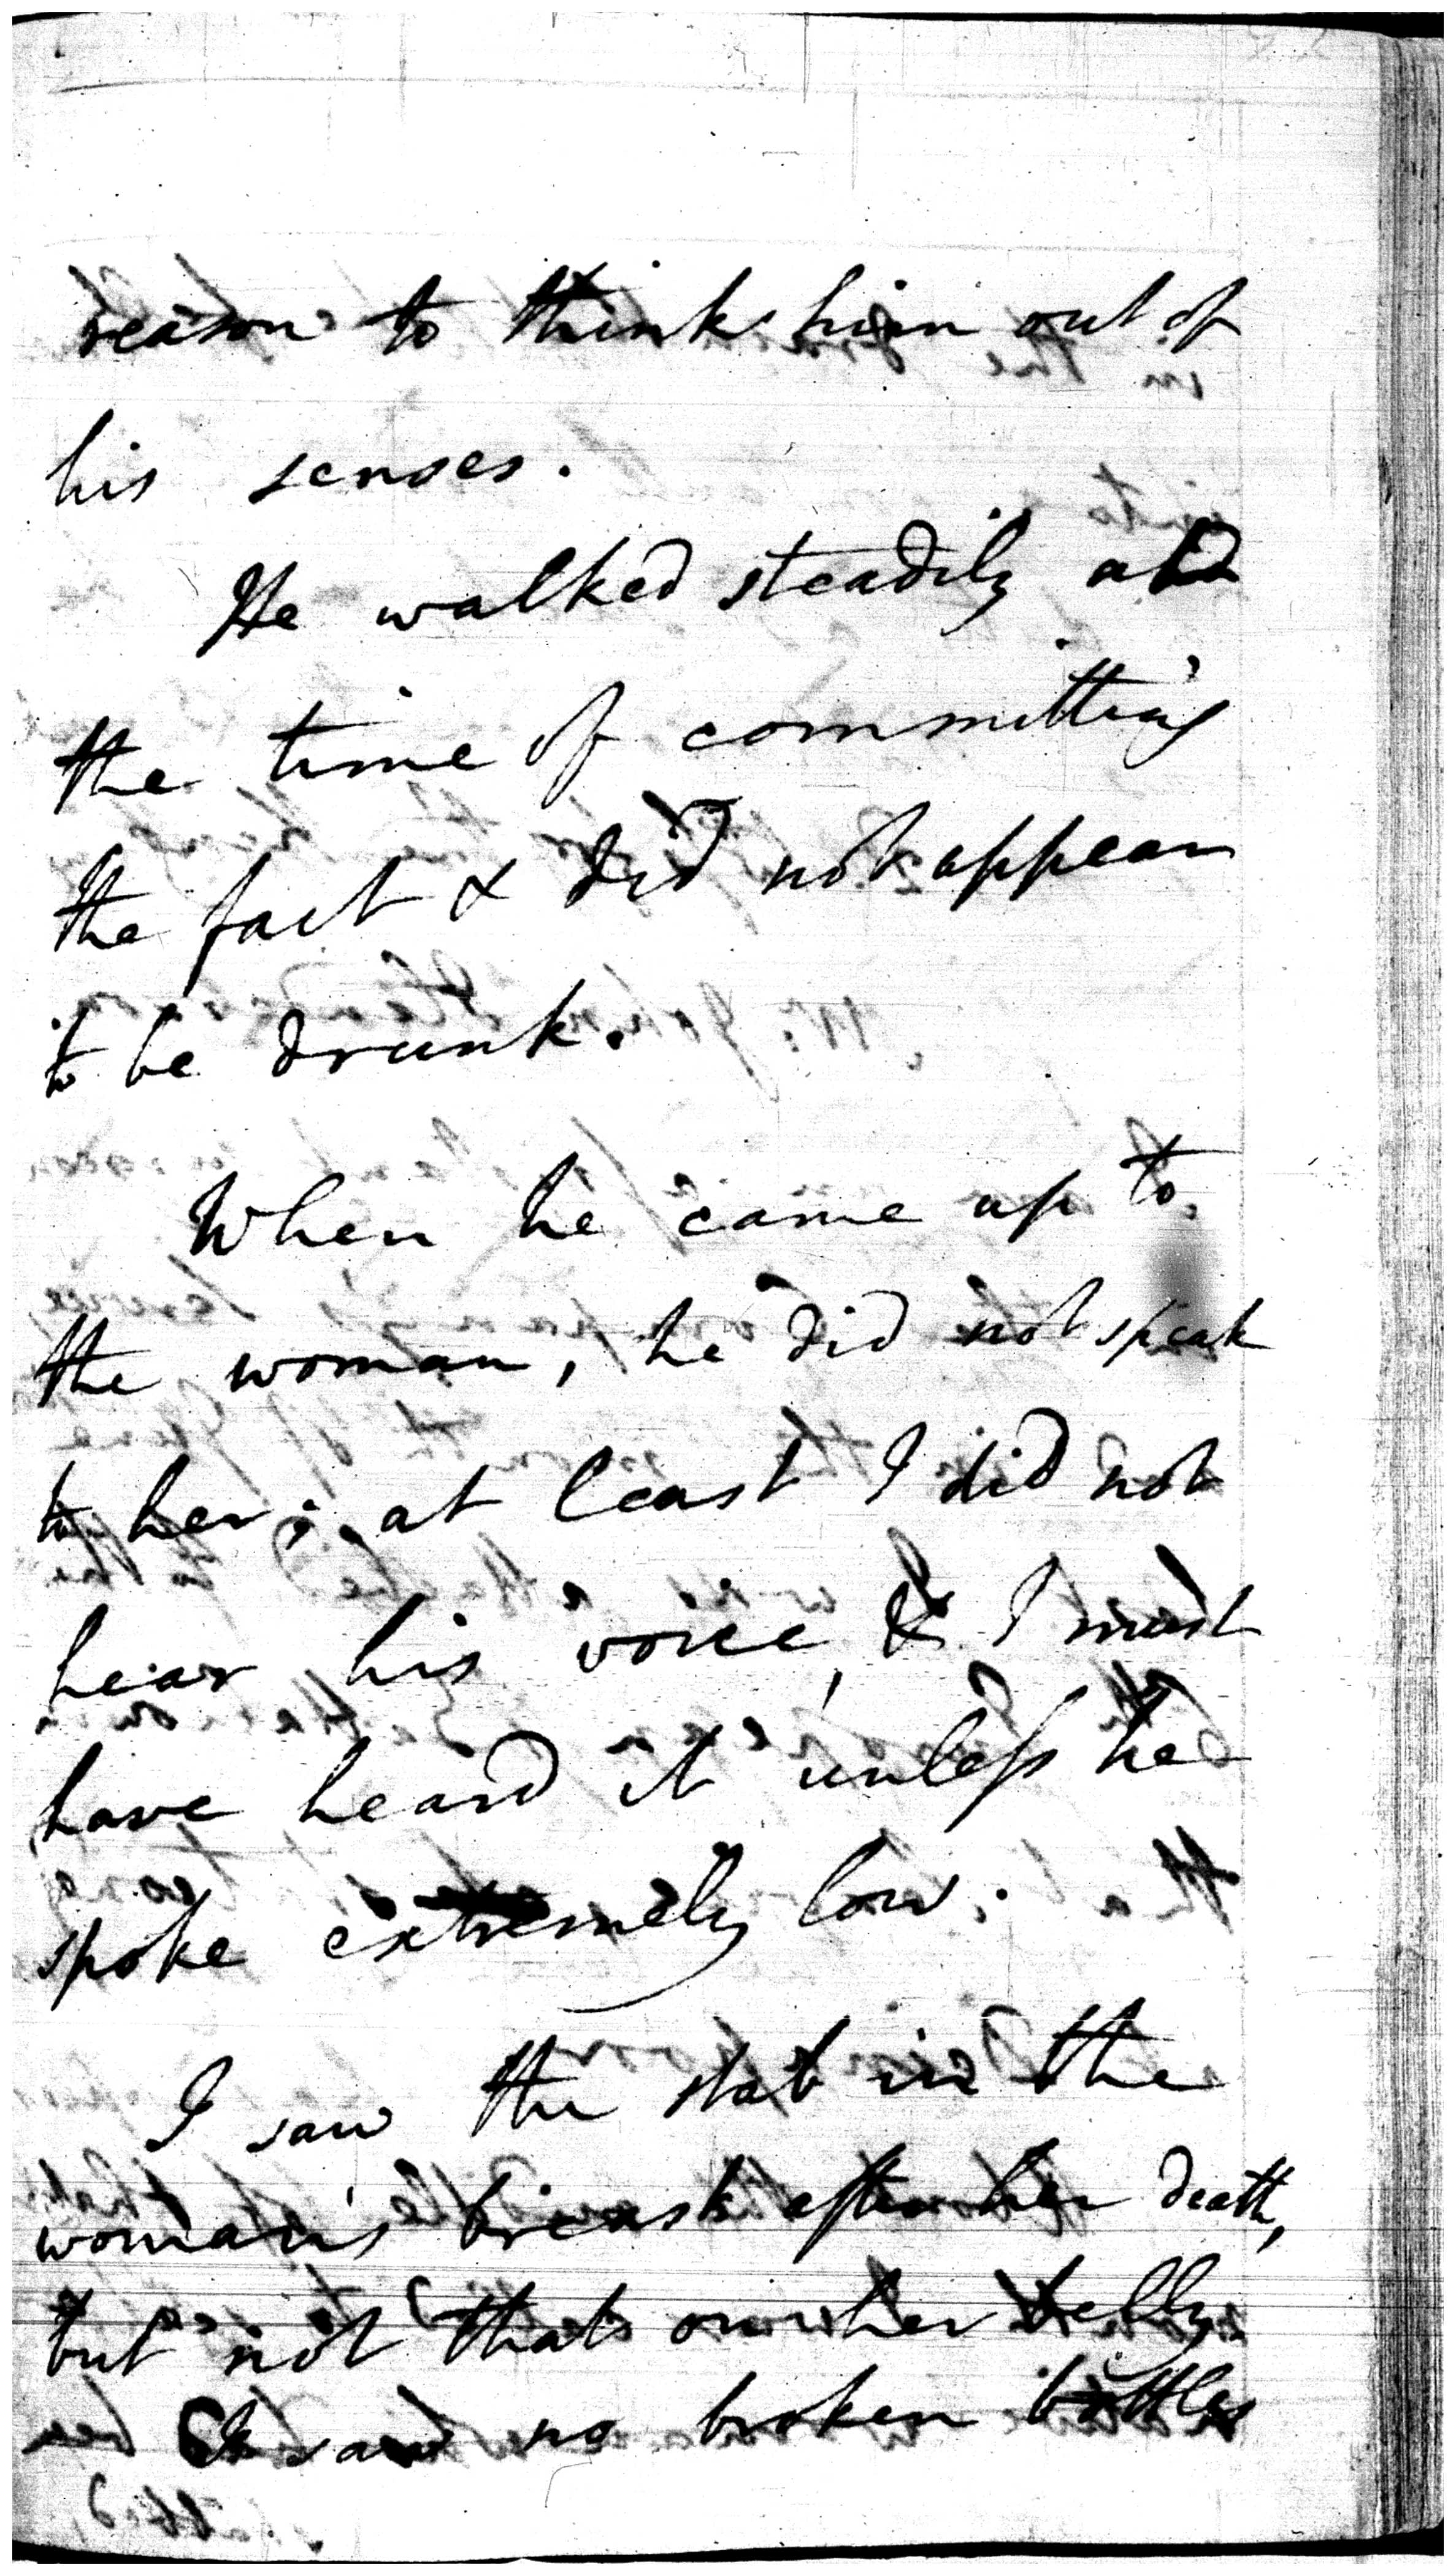 reason to think him out of
his senses.
He walked steadily at
the time of committing
the fact & did not appear
to be drunk.
When he came up to
the woman, he did not speak
to her; at least I did not
hear his voice, & I must
have heard it unless he
spoke extremely low.
I saw the stab in the
woman's breast after her death,
but not that on her belly.
I saw no broken bottles